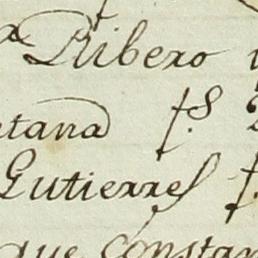 Ribero
etana f.s
Gutierres f.
que constan